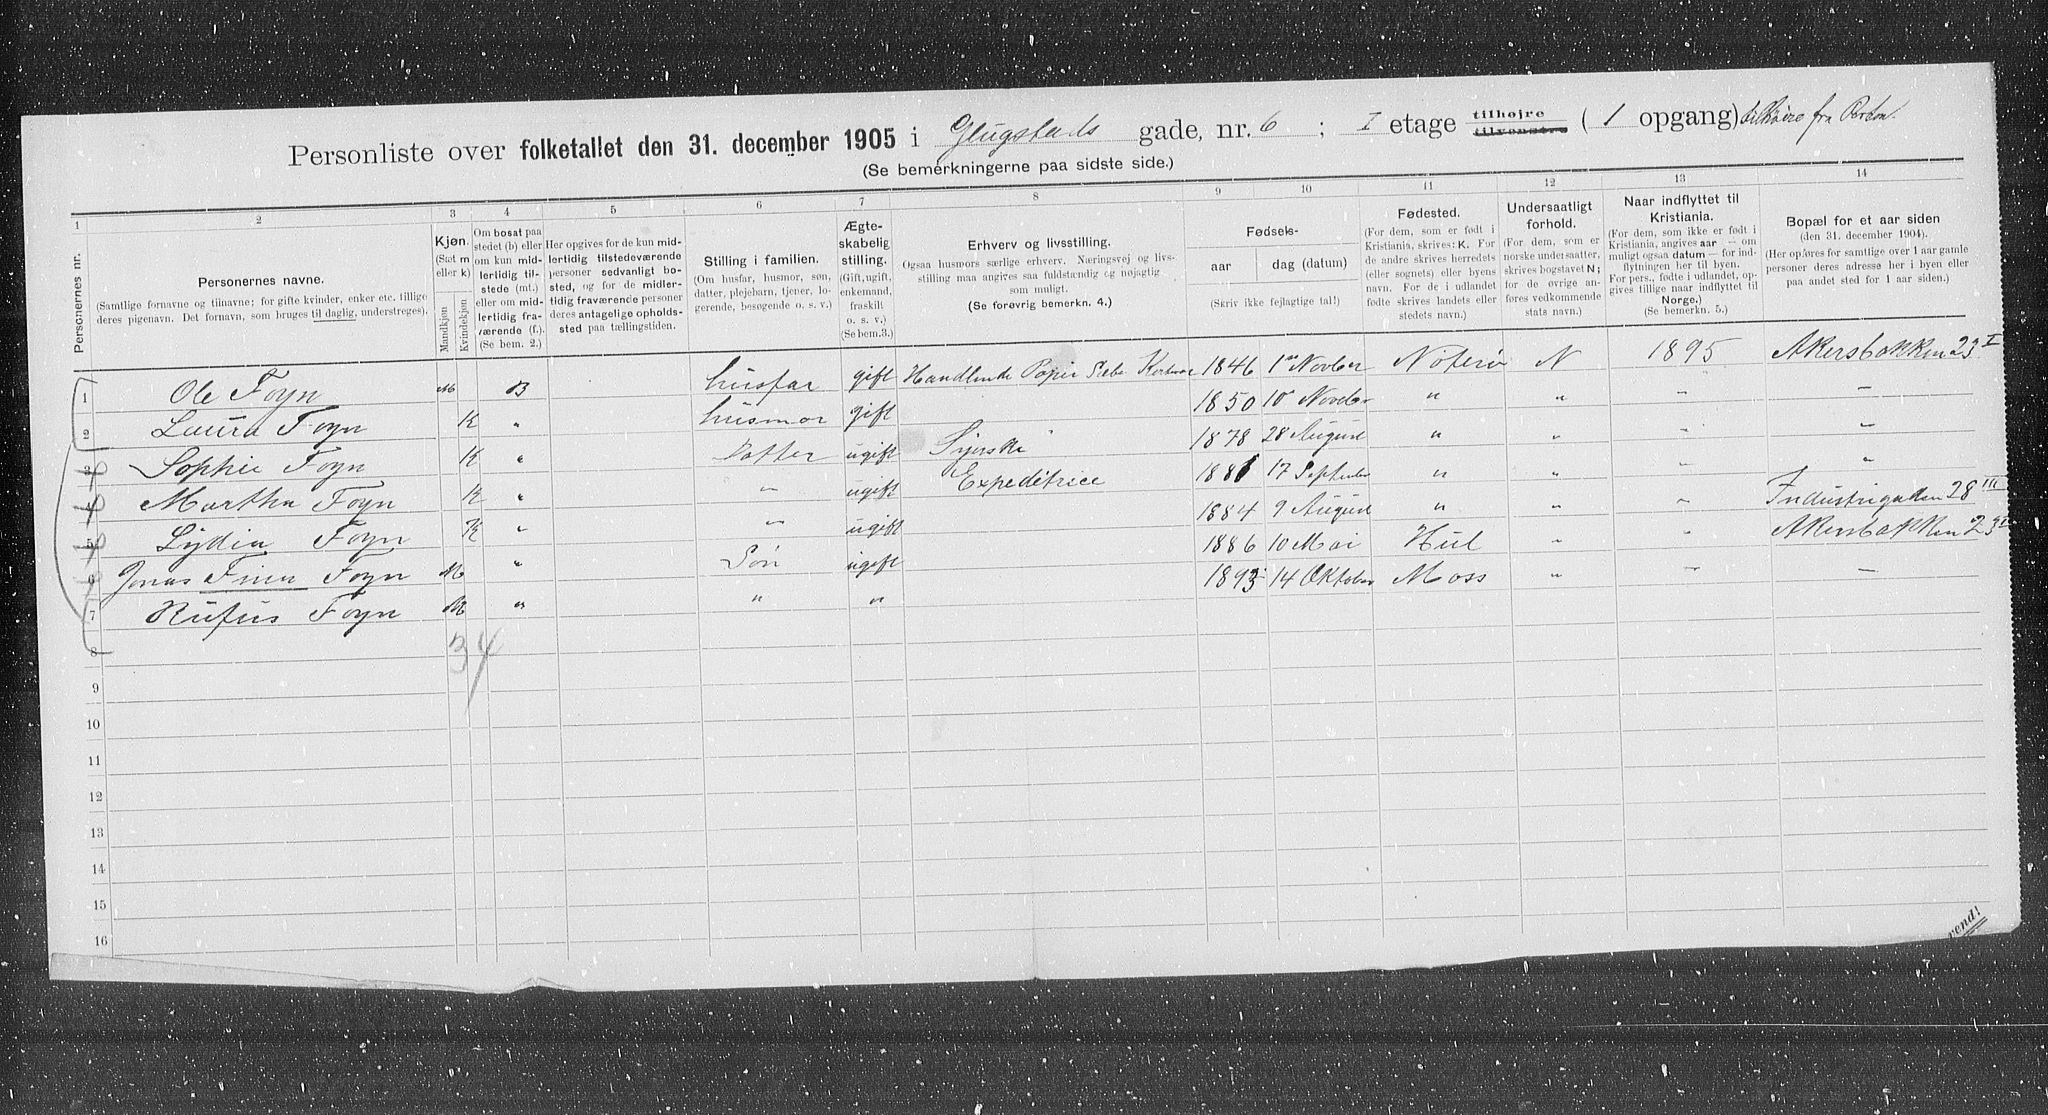 Personliste over folketallet den 31. december 1905 i Glugstads gade, nr. 6 ; I etage tilhøjre tilvenstre ( 1 opgang) tilhøire fra Porten.
(Se bemerkningerne paa sidste side.)
1 2 3 4 5 6 7 8 9 10 11 12 13 14
Personernes nr.
Personernes navne.
(Samtlige fornavne og tilnavne; for gifte kvinder, enker etc. tillige
deres pigenavn. Det fornavn, som bruges til daglig, understreges).
Kjøn.
(Sæt m
eller k)
Mandkjøn
Kvindekjøn
Om bosat paa
stedet (b) eller
om kun mid-
lertidig til-
stede (mt.)
eller om mid-
lertidig fra-
værende (f.).
(Se bem. 2.)
Her opgives for de kun mid-
lertidig tilstedeværende
personer sedvanligt bo-
sted, og for de midler-
tidig fraværende personer
deres antagelige opholds-
sted paa tællingstiden.
Stilling i familien.
(Om husfar, husmor, søn,
datter, plejebarn, tjener, lo-
gerende, besøgende o. s. v.)
Ægte-
skabelig
stilling.
(Gift, ugift,
enkemand,
fraskilt
o. s. v.)
(Se bem. 3.)
Erhverv og livsstilling.
Ogsaa husmors særlige erhverv. Næringsvej og livs-
stilling maa angives saa fuldstændig og nøjagtig
som muligt.
(Se forøvrig bemerkn. 4.)
Fødsels-
aar
dag (datum)
(Skriv ikke fejlagtige tal!)
Fødested.
(For dem, som er født i
Kristiania, skrives: K. For
de andre skrives herredets
(eller sognets) eller byens
navn. For de i udlandet
fødte skrives landets eller
stedets navn.)
Undersaatligt
forhold.
(For dem, som er
norske undersaatter,
skrives bogstavet N;
for de øvrige an-
føres vedkommende
stats navn.)
Naar indflyttet til
Kristiania.
(For dem, som ikke er født i
Kristiania, angives aar — om
muligt ogsaa datum — for ind-
flytningen her til byen.
For pers., fødte i udlandet, op-
gives tillige naar indflyttet til
Norge.)
(Se bemerkn. 5.)
Bopæl for et aar siden
(den 31. december 1904).
(Her opføres for samtlige over 1 aar gamle
personer deres adresse her i byen eller
paa andet sted for 1 aar siden.)
1 Ole Foyn M B husfar gift Handlende Papir 1846 1 Novber Nøterø N 1895 Akersbakken 23 I
2 Laura Foyn K " husmor gift 1850 10 Novber " " " "
3 Sophie Foyn K " Datter ugift Syerske 1878 28 August " " " "
4 Martha Foyn K " " ugift Expeditrice 1881 17 September " " " "
5 Lydia Foyn K " " ugift 1884 9 August " " " Industrigaden 28 III
6 Jonas Finn Foyn M " Søn ugift 1886 10 Mai Hul " " Akersbakken 23 I
7 Rufus Foyn M " " " 1893 14 Oktober Moss " " "
8
34
9
10
11
12
13
14
15
16
vend!